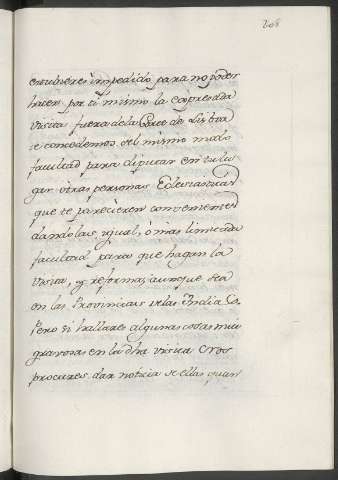 208
estubieres impedido para no poder
hacer por ti mismo la expresada
visita fuera dela Corte de Lisboa
te concedemos del mismo modo
facultad para diputar en tu lu
gar otras personas Eclesiasticas
que te parecieren convenientes
dandolas igual, ó mas limitada
facultad para que hagan la
visita, y reforma, aunque sea
en las Provincias de las Indias.
Pero si hallares algunas cosas mui
gravosas en la dha visita
procures dar noticia de ellas quan